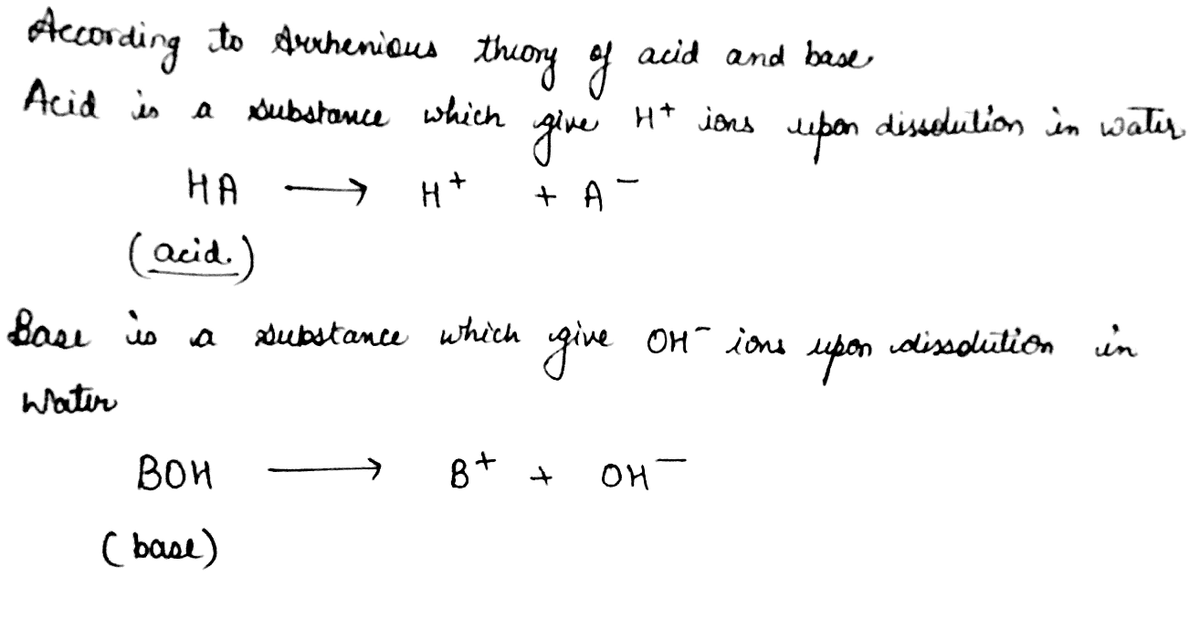 According to Arrhenious theory of acid and base
Acid is a substance which give H⁺ ions upon dissolution in water
HA ⟶ H⁺ + A⁻
(acid.)
Base is a substance which give OH⁻ ions upon dissolution in
water
BOH ⟶ B⁺ + OH⁻
(base)